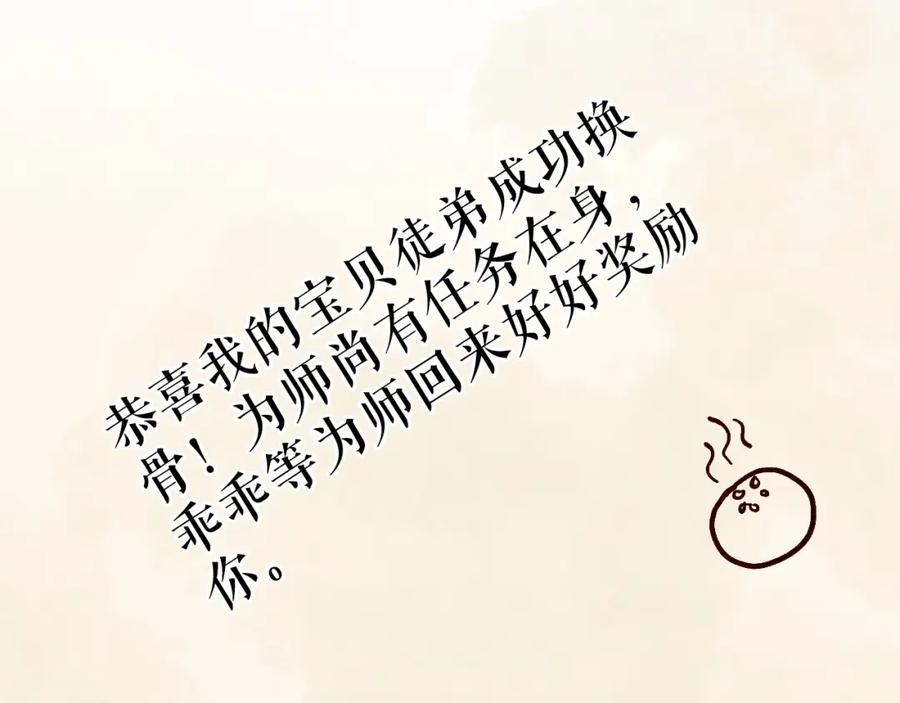 恭喜我的宝贝徒弟成功换
骨！为师尚有任务在身，
乖乖等为师回来好好奖励
你。